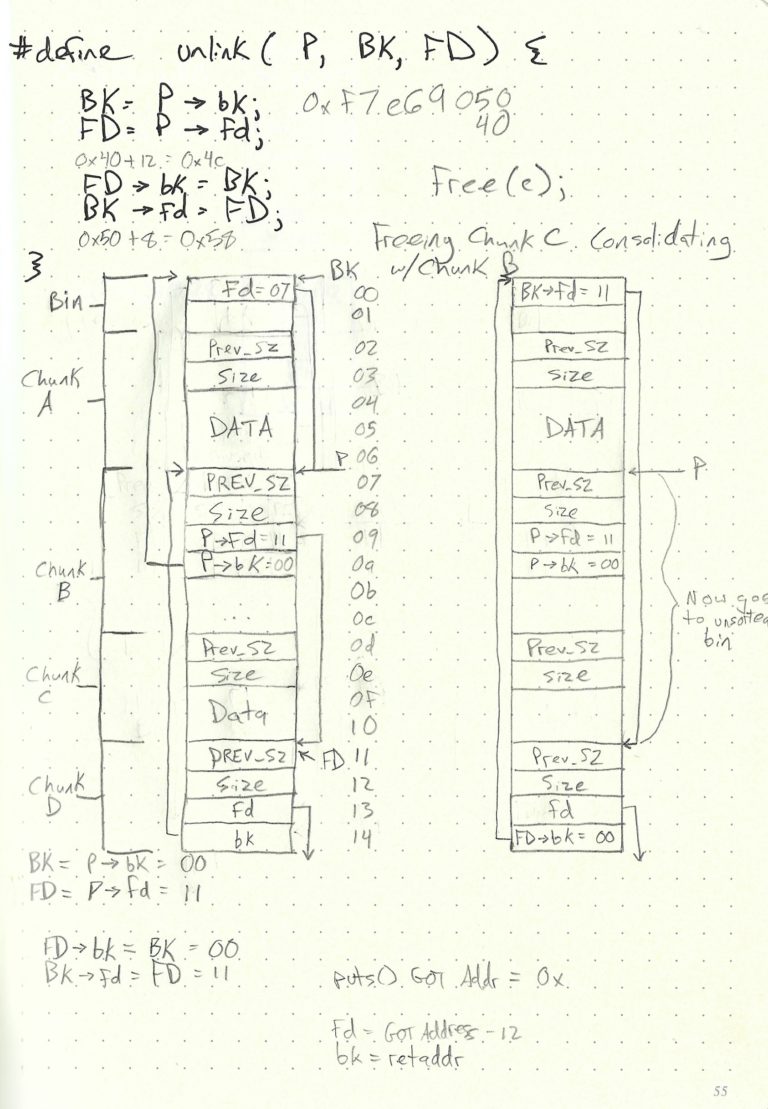 #define unlink( P, BK, FD) {
BK = P → bk;
FD = P → fd;
0x40+12 = 0x4c
FD → bk = BK;
BK → fd = FD;
0x50+8 = 0x58
}
0xf7e69050
40
Free(c);
Freeing Chunk C. Consolidating
w/Chunk B
Bin
Chunk
A
Chunk
B
Chunk
C
Chunk
D
Fd=07
Prev_SZ
Size
DATA
PREV_SZ
Size
P→Fd=11
P→bk=00
...
Prev_SZ
Size
Data
PREV_SZ
Size
fd
bk
BK
00
01
02
03
04
05
P 06
07
08
09
0a
0b
0c
0d
0e
0F
10
FD 11
12
13
14
BK→fd=11
Prev_SZ
Size
DATA
P
Prev_SZ
Size
P→fd=11
P→bk=00
Prev_SZ
Size
Prev_SZ
Size
fd
FD→bk=00
Now goes
to unsorted
bin
BK = P→bk = 00
FD = P→fd = 11
FD→bk = BK = 00
BK→fd = FD = 11
puts() GOT Addr = 0x
Fd = GOT Address -12
bk = retaddr
55